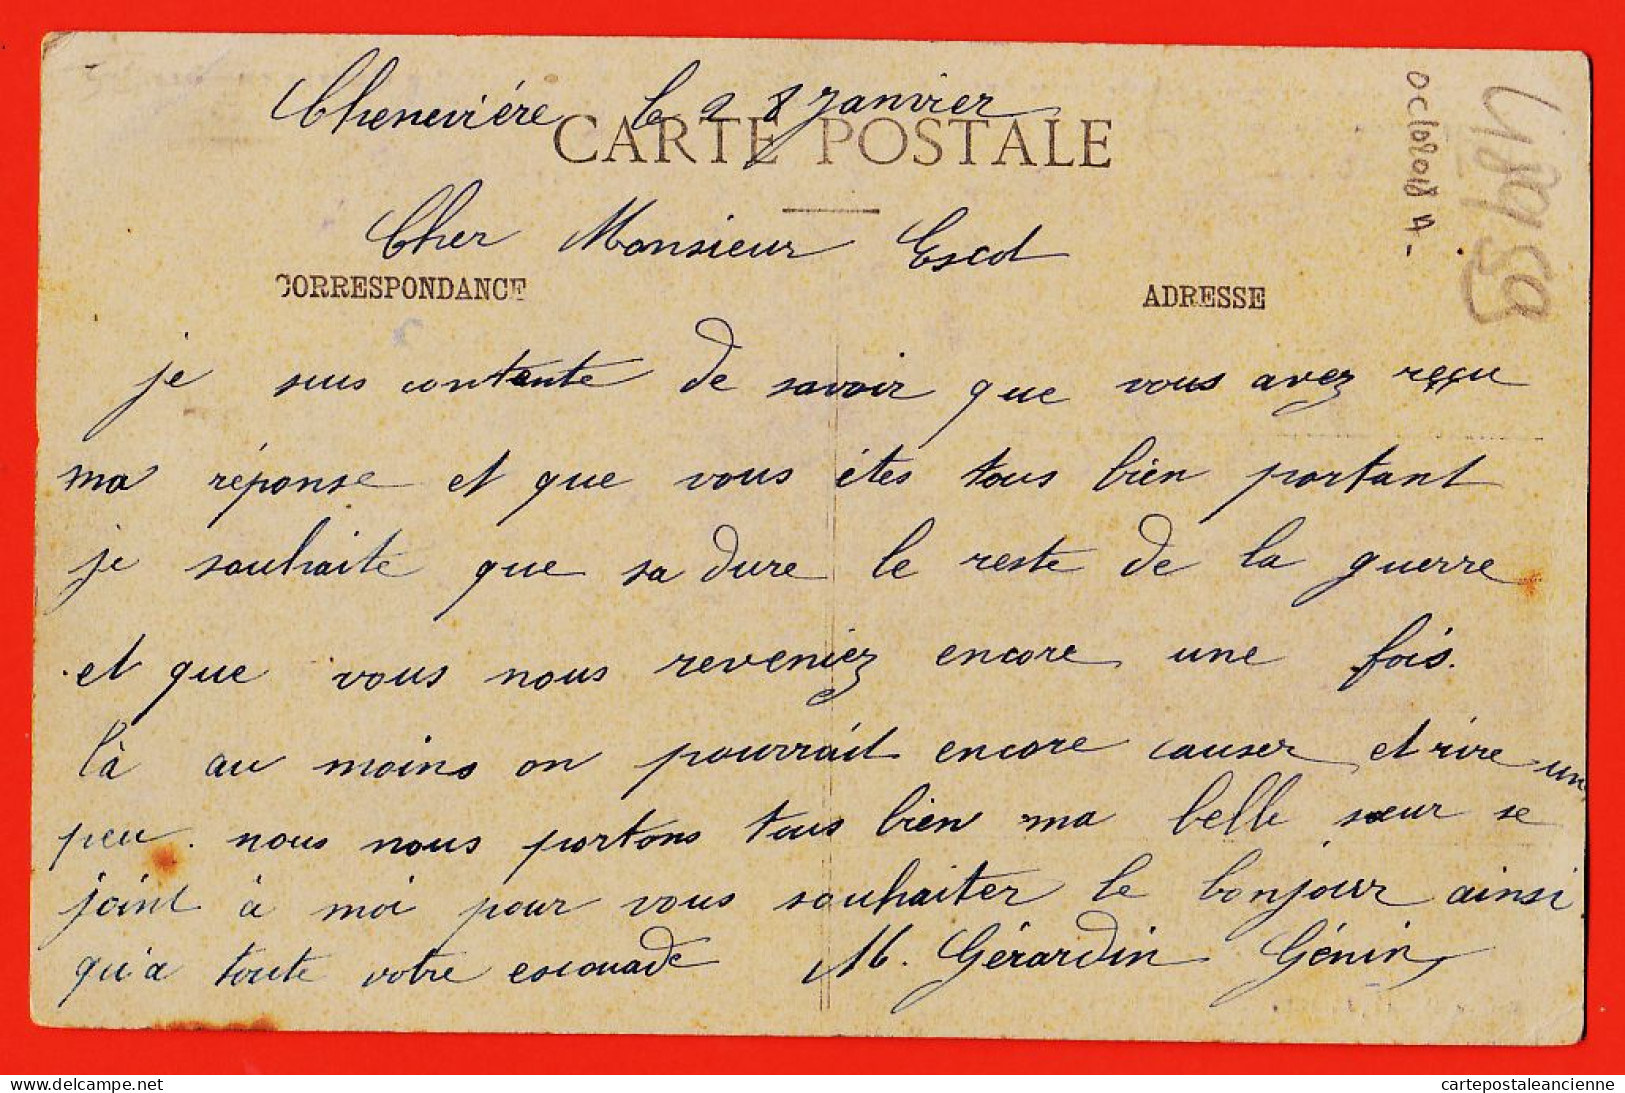 Chenevière le 28 Janvier
CARTE POSTALE
Cher Monsieur Escot
CORRESPONDANCE
ADRESSE
je suis contente de savoir que vous avez reçu
ma réponse et que vous êtes tous bien portant
je souhaite que sa dure le reste de la guerre
et que vous nous reveniez encore une fois.
là au moins on pourrait encore causer et rire un
peu. nous nous portons tous bien ma belle sœur se
joint à moi pour vous souhaiter le bonjour ainsi
qu'a toute votre escouade M. Gérardin Génin
cartes-postales-anciennes-magasin-113-delcampe.net
cartepostaleancienne